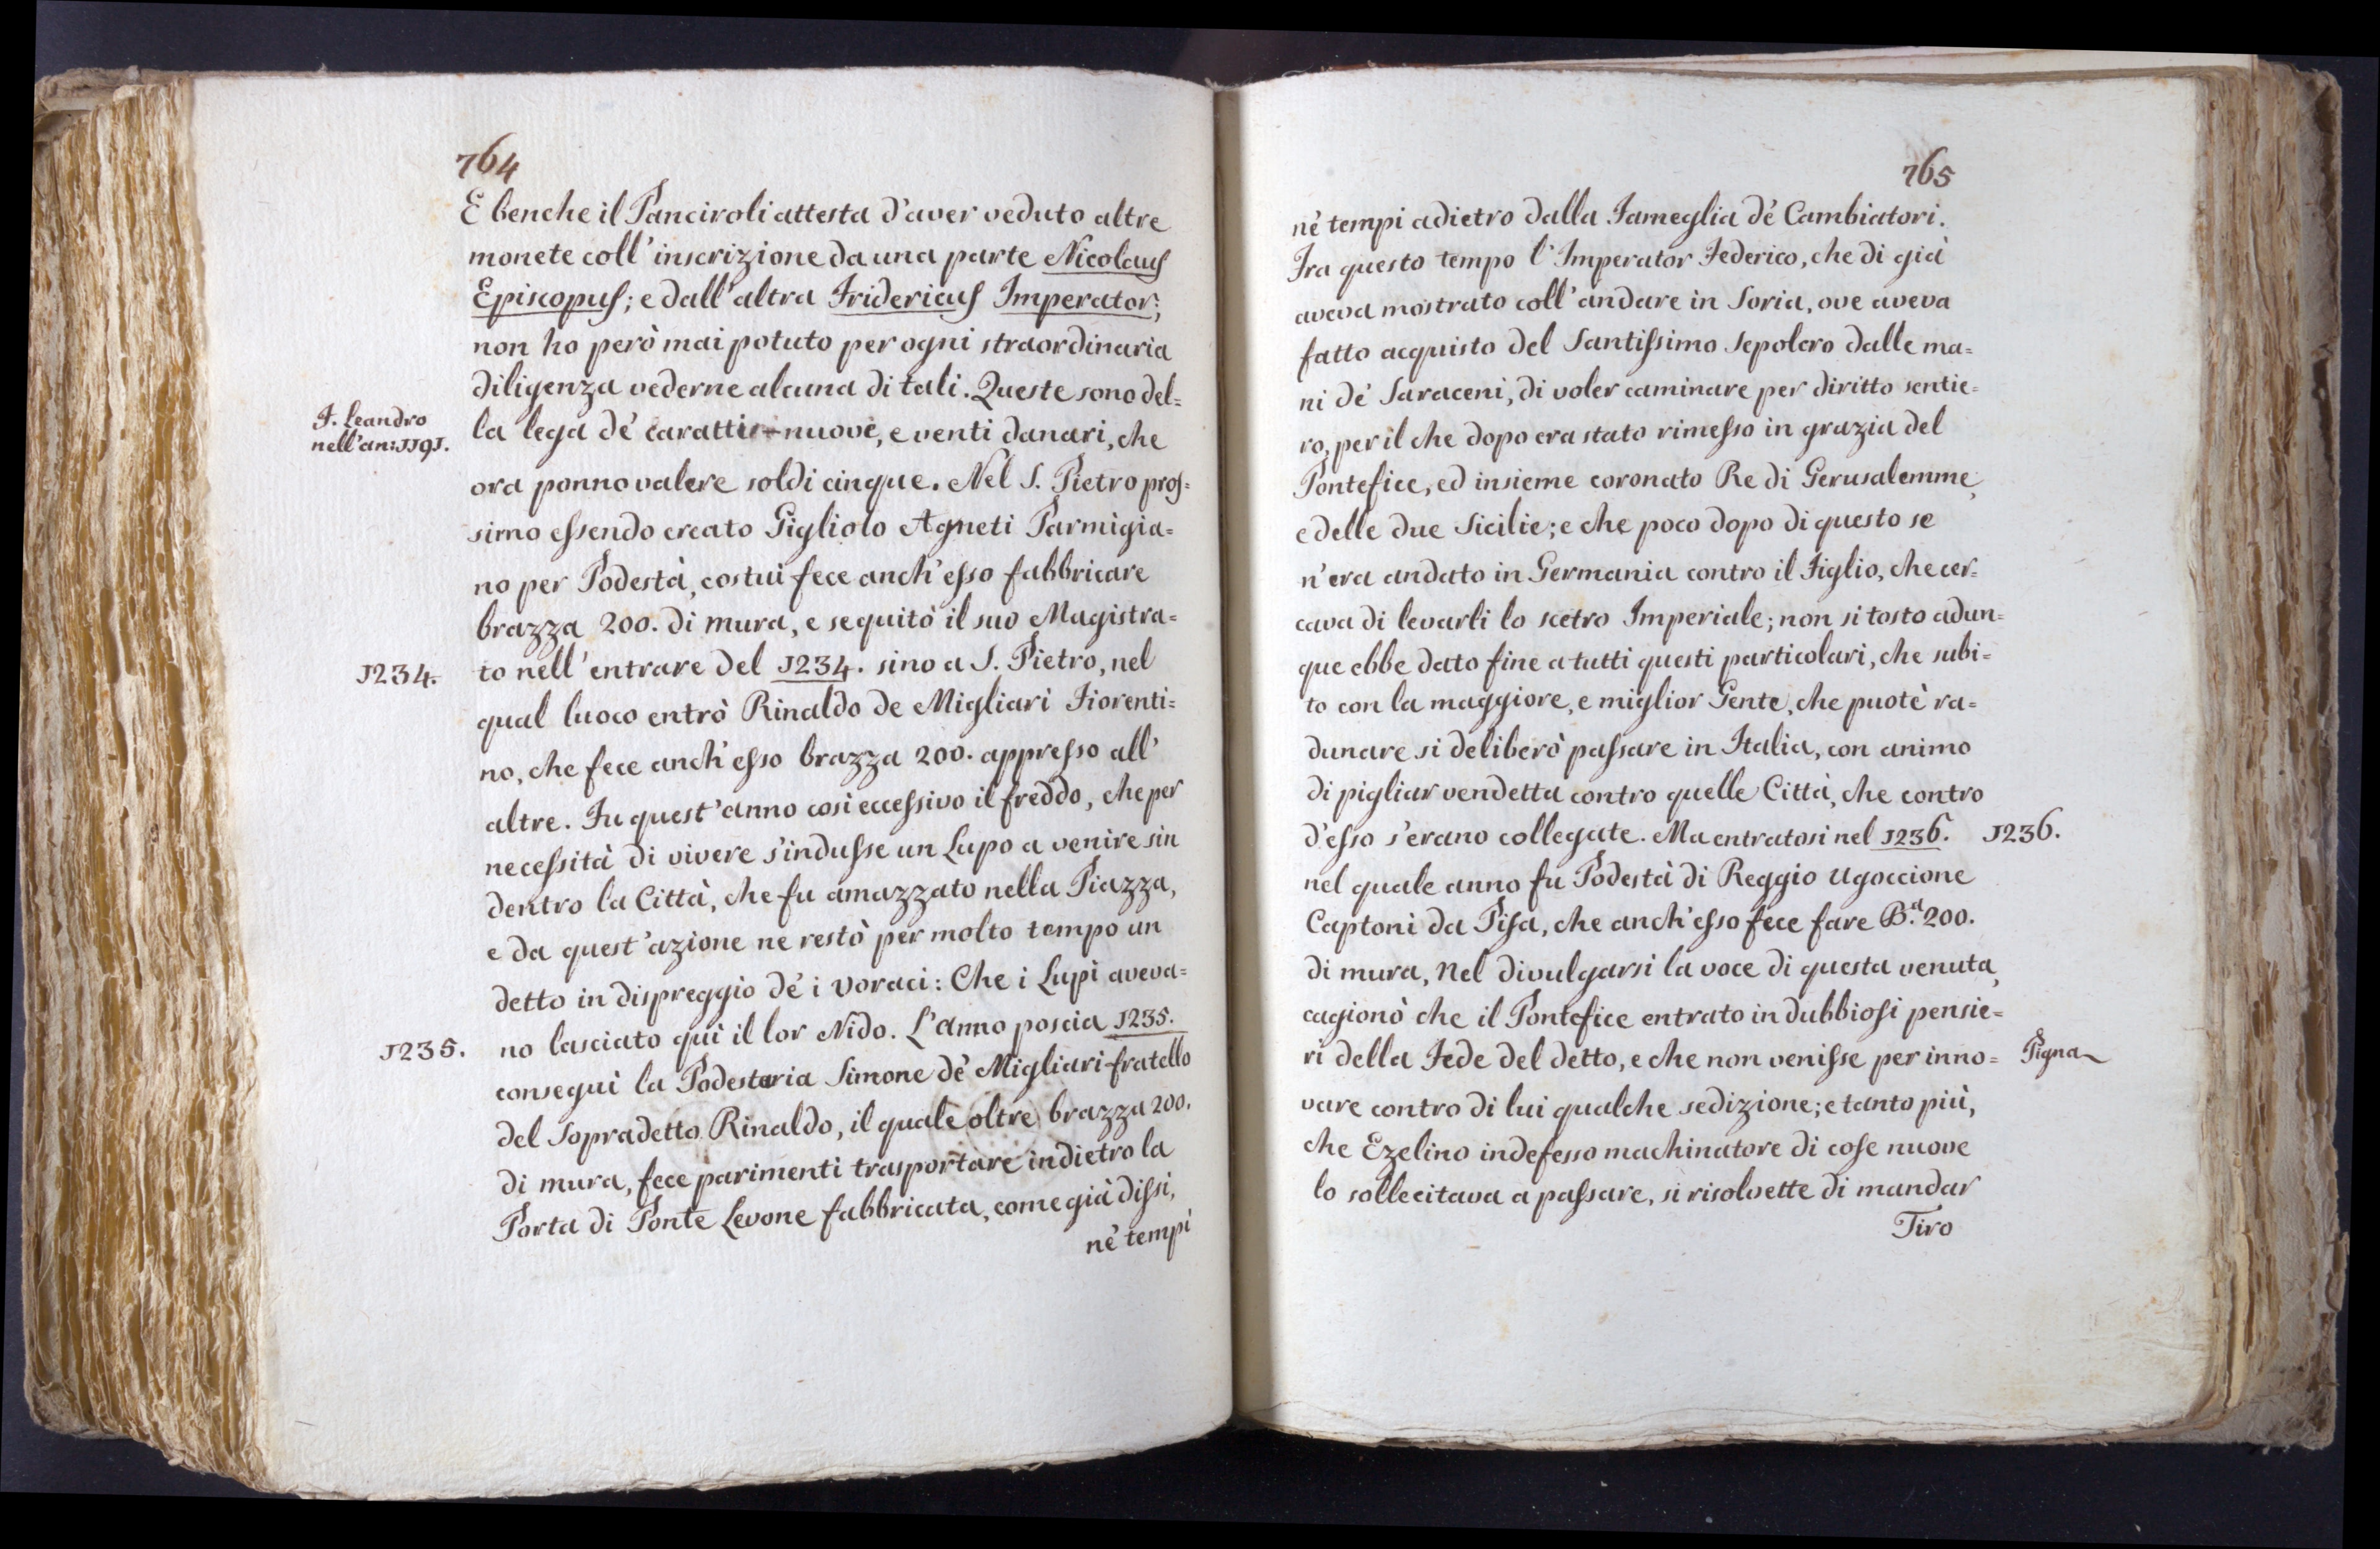 764
E benche il Panciroli attesta d'aver veduto altre
monete coll'inscrizione da una parte Nicolaus
Episcopus; e dall'altra Fridericus Imperator;
non ho però mai potuto per ogni straordinaria
diligenza vederne alcuna di tali. Queste sono del=
F. Leandro
nell'an: 1191.
la lega dè caratti nuove, e venti danari, che
ora ponno valere soldi cinque. Nel S. Pietro pros=
simo essendo creato Gigliolo Agneti Parmigia=
no per Podestà, costui fece anch'esso fabbricare
brazza 200. di mura, e sequitò il suo Magistra=
1234.
to nell'entrare del 1234. sino a S. Pietro, nel
qual luoco entrò Rinaldo de Migliari Fiorenti=
no, che fece anch'esso brazza 200. appresso all'
altre. Fu quest'anno così eccessivo il freddo, che per
necessità di vivere s'indusse un Lupo a venire sin
dentro la Città, che fu amazzato nella Piazza,
e da quest'azione ne restò per molto tempo un
detto in dispreggio dè i voraci: Che i Lupi aveva=
1235.
no lasciato quì il lor Nido. L'anno poscia 1235.
conseguì la Podesteria Simone dè Migliari fratello
del Sopradetto Rinaldo, il quale oltre brazza 200.
di mura, fece parimenti trasportare indietro la
Porta di Ponte Levone fabbricata, come già dissi,
nè tempi
765
nè tempi adietro dalla Fameglia dè Cambiatori.
Fra questo tempo l'Imperator Federico, che di già
aveva mostrato coll'andare in Soria, ove aveva
fatto acquisto del Santissimo Sepolcro dalle ma=
ni dè Saraceni, di voler caminare per diritto sentie=
ro, per il che dopo era stato rimesso in grazia del
Pontefice, ed insieme coronato Re di Gerusalemme,
e delle due Sicilie; e che poco dopo di questo se
n'era andato in Germania contro il Figlio, che cer=
cava di levarli lo scetro Imperiale; non si tosto adun=
que ebbe dato fine a tutti questi particolari, che subi=
to con la maggiore, e miglior Gente, che puotè ra=
dunare si deliberò passare in Italia, con animo
di pigliar vendetta contro quelle Città, che contro
d'esso s'erano collegate. Ma entratosi nel 1236.
1236.
nel quale anno fu Podestà di Reggio Ugoccione
Captoni da Pisa, che anch'esso fece fare B.a 200.
di mura, Nel divulgarsi la voce di questa venuta,
cagionò che il Pontefice entrato in dubbiosi pensie=
ri della Fede del detto, e che non venisse per inno=
Pigna
vare contro di lui qualche sedizione; e tanto più,
che Ezelino indefesso machinatore di cose nuove
lo sollecitava a passare, si risolvette di mandar
Tiro